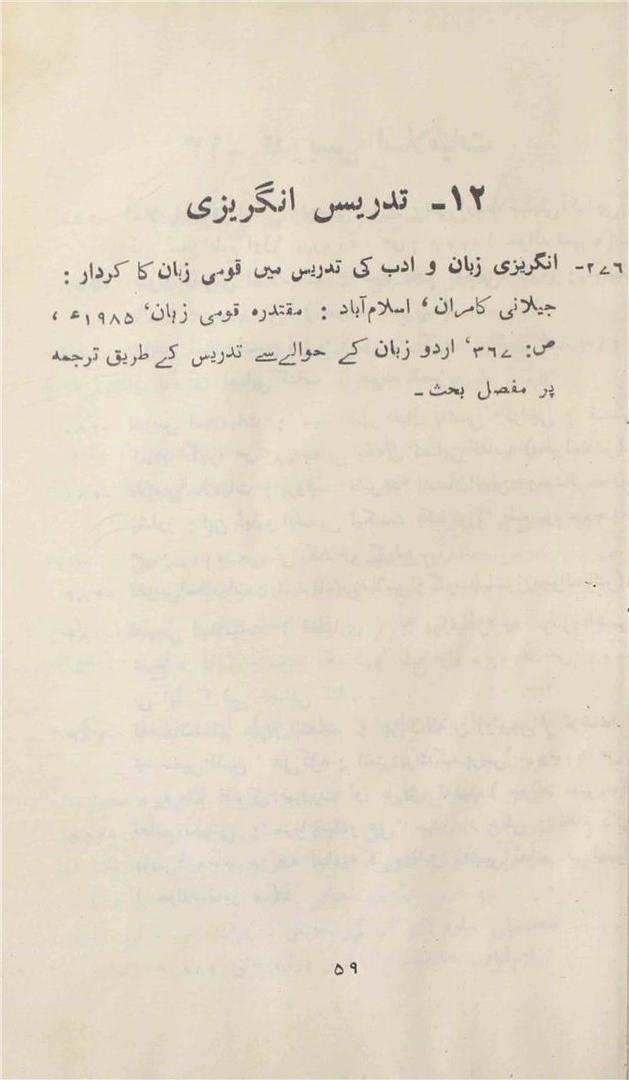 ۱۲- تدریس انگریزی
۲۷۶- انگریزی زبان و ادب کی تدریس میں قومی زبان کا کردار :
جیلانی کامران ، اسلام آباد : مقتدرہ قومی زبان، ۱۹۸۵ء ،
ص: ۳۶۷، اردو زبان کے حوالے سے تدریس کے طریق ترجمہ
پر مفصل بحث -
۵۹